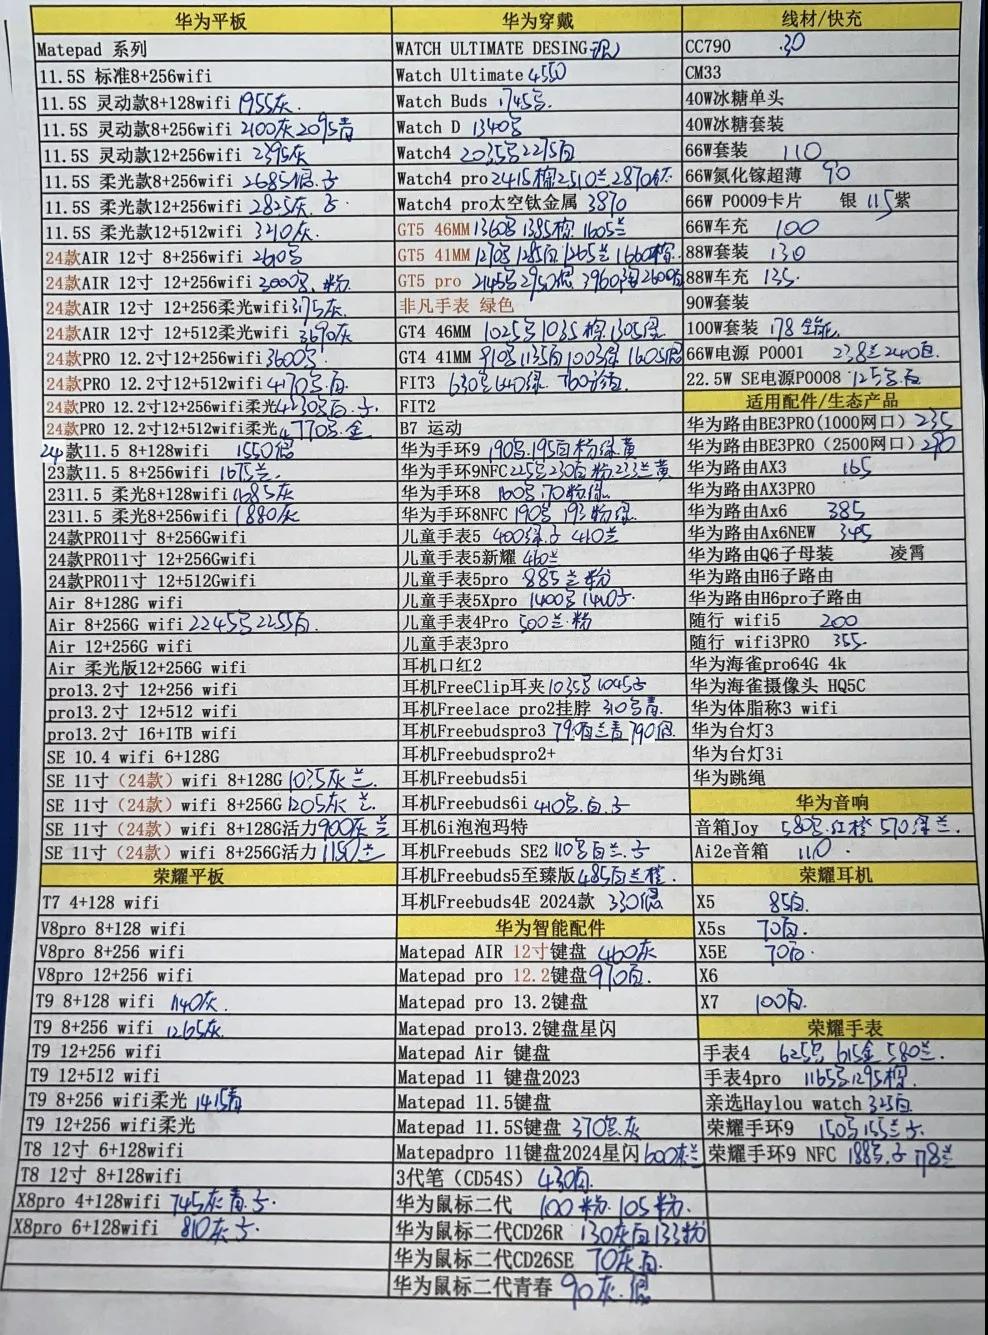 华为平板
Matepad 系列
11.5S 标准8+256wifi
11.5S 灵动款8+128wifi 1955灰.
11.5S 灵动款8+256wifi 2100灰 2095青
11.5S 灵动款12+256wifi 2395灰
11.5S 柔光款8+256wifi 2685
11.5S 柔光款12+256wifi 2825灰.
11.5S 柔光款12+512wifi 3210灰.
24款AIR 12寸 8+256wifi
24款AIR 12寸 12+256wifi 粉
24款AIR 12寸 12+256柔光wifi 3175灰
24款AIR 12寸 12+512柔光wifi 3670灰
24款PRO 12.2寸12+256wifi 3600
24款PRO 12.2寸12+512wifi
24款PRO 12.2寸12+256wifi柔光
24款PRO 12.2寸12+512wifi柔光 金
24款11.5 8+128wifi 1550
23款11.5 8+256wifi 1675兰.
2311.5 柔光8+128wifi 1685灰
2311.5 柔光8+256wifi 1880灰
24款PRO11寸 8+256Gwifi
24款PRO11寸 12+256Gwifi
24款PRO11寸 12+512Gwifi
Air 8+128G wifi
Air 8+256G wifi 2245 2255
Air 12+256G wifi
Air 柔光版12+256G wifi
pro13.2寸 12+256 wifi
pro13.2寸 12+512 wifi
pro13.2寸 16+1TB wifi
SE 10.4 wifi 6+128G
SE 11寸（24款）wifi 8+128G 1035灰 兰.
SE 11寸（24款）wifi 8+256G 1205灰 兰.
SE 11寸（24款）wifi 8+128G活力 900灰 兰
SE 11寸（24款）wifi 8+256G活力 1150兰
荣耀平板
T7 4+128 wifi
V8pro 8+128 wifi
V8pro 8+256 wifi
V8pro 12+256 wifi
T9 8+128 wifi 1140灰.
T9 8+256 wifi 1265灰.
T9 12+256 wifi
T9 12+512 wifi
T9 8+256 wifi柔光 1415青
T9 12+256 wifi柔光
T8 12寸 6+128wifi
T8 12寸 8+128wifi
X8pro 4+128wifi 745灰 青
X8pro 6+128wifi 810灰
华为穿戴
WATCH ULTIMATE DESING
Watch Ultimate 4550
Watch Buds 1745
Watch D 1340
Watch4 2035 2215
Watch4 pro 2415棕 2510兰 2870
Watch4 pro太空钛金属 3870
GT5 46MM 1360 1385棕 1605兰
GT5 41MM 1270 1285
GT5 pro
非凡手表 绿色
GT4 46MM 1025 1035棕 1305绿
GT4 41MM 910 1135
FIT3 630 640绿
FIT2
B7 运动
华为手环9 190 195白粉绿黄
华为手环9NFC 225 230白粉 233兰黄
华为手环8 160 170粉绿.
华为手环8NFC 190 193粉绿
儿童手表5 400绿 410兰
儿童手表5新耀 460兰
儿童手表5pro 885兰 粉
儿童手表5Xpro 1400 1440
儿童手表4Pro 500兰.粉
儿童手表3pro
耳机口红2
耳机FreeClip耳夹 1035 1045
耳机Freelace pro2挂脖 310 青.
耳机Freebudspro3 790白兰青 790
耳机Freebudspro2+
耳机Freebuds5i
耳机Freebuds6i 410 白
耳机6i泡泡玛特
耳机Freebuds SE2 110 白兰.
耳机Freebuds5至臻版 485白兰橙.
耳机Freebuds4E 2024款 330
华为智能配件
Matepad AIR 12寸键盘 460灰
Matepad pro 12.2键盘 970白.
Matepad pro 13.2键盘
Matepad pro13.2键盘星闪
Matepad Air 键盘
Matepad 11 键盘2023
Matepad 11.5键盘
Matepad 11.5S键盘 370 灰
Matepadpro 11键盘2024星闪 600灰兰
3代笔（CD54S）430白.
华为鼠标二代 100 粉. 105粉.
华为鼠标二代CD26R 130灰白 133粉
华为鼠标二代CD26SE 70灰白.
华为鼠标二代青春 90灰.
线材/快充
CC790 30
CM33
40W冰糖单头
40W冰糖套装
66W套装 110
66W氮化镓超薄 90
66W P0009卡片 银 115紫
66W车充 100
88W套装 130
88W车充 135.
90W套装
100W套装 178 全能.
66W电源 P0001 238兰 240白.
22.5W SE电源P0008
适用配件/生态产品
华为路由BE3PRO(1000网口) 235
华为路由BE3PRO（2500网口）290
华为路由AX3 165
华为路由AX3PRO
华为路由Ax6 385
华为路由Ax6NEW 345
华为路由Q6子母装 凌霄
华为路由H6子路由
华为路由H6pro子路由
随行 wifi5 200
随行 wifi3PRO 355.
华为海雀pro64G 4k
华为海雀摄像头 HQ5C
华为体脂称3 wifi
华为台灯3
华为台灯3i
华为跳绳
华为音响
音箱Joy 580 红橙 570绿兰.
Ai2e音箱 110.
荣耀耳机
X5 85白.
X5s 70白.
X5E 70白.
X6
X7 100白.
荣耀手表
手表4 625 615金 580兰.
手表4pro 1165 1295棕.
亲选Haylou watch 325白
荣耀手环9 150 155兰
荣耀手环9 NFC 188 178兰